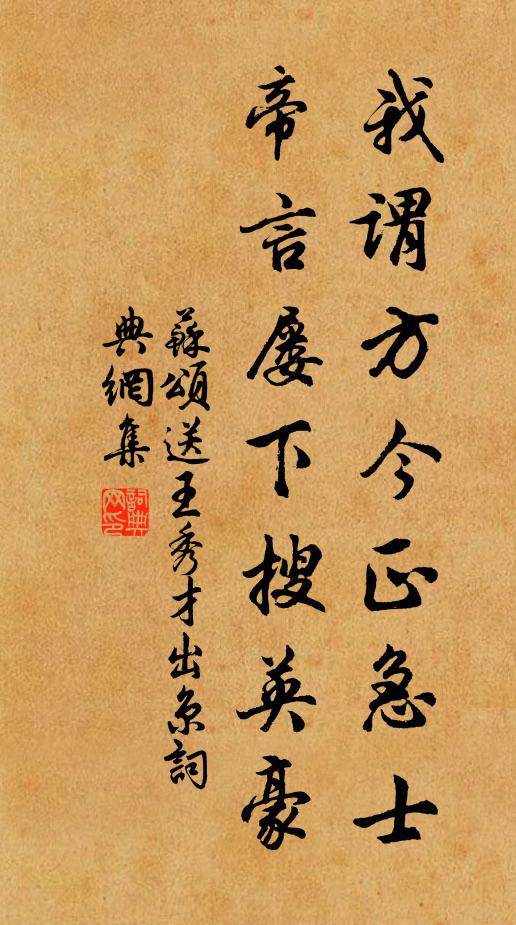 我謂方今正急士
帝言屡下搜英豪
蘇頌送王秀才出京詞
典網集
詞典网印